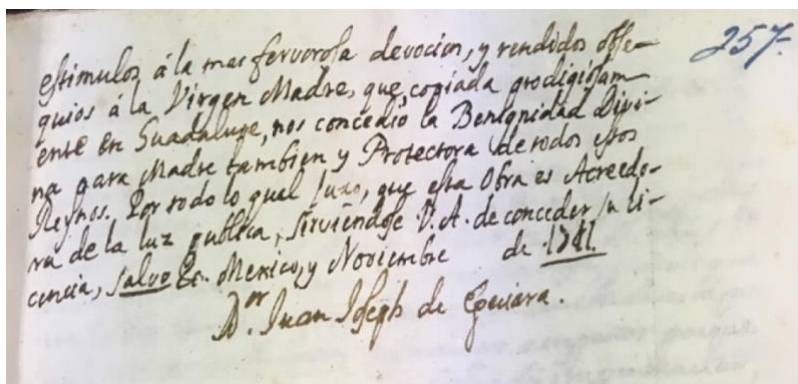 257.
estimulos á la mas fervorosa devocion, y rendidos obse-
quios á la Virgen Madre, que, copiada prodigiosam-
ente en Guadalupe, nos concedió la Benignidad Divi-
na para Madre tambien y Protectora de todos estos
Reynos. Por todo lo qual juzo, que esta Obra es Acreedo-
ra de la luz publica, sirviendose V. A. de conceder su li-
cencia, salvo &c. Mexico, y Noviembre de 1741.
Dor. Juan Joseph de Eguiara.